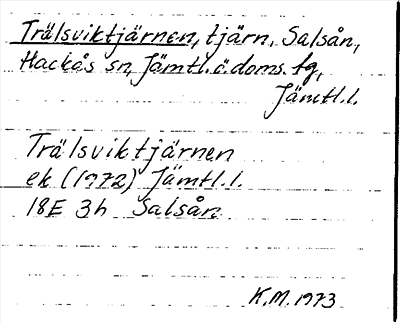 Trälsviktjärnen, tjärn, Salsån,
Hackås sn, Jämtl. ö. doms. tg,
Jämtl.l.
Trälsviktjärnen
ek (1972) Jämtl.l.
18E 3h Salsån
K.M. 1973